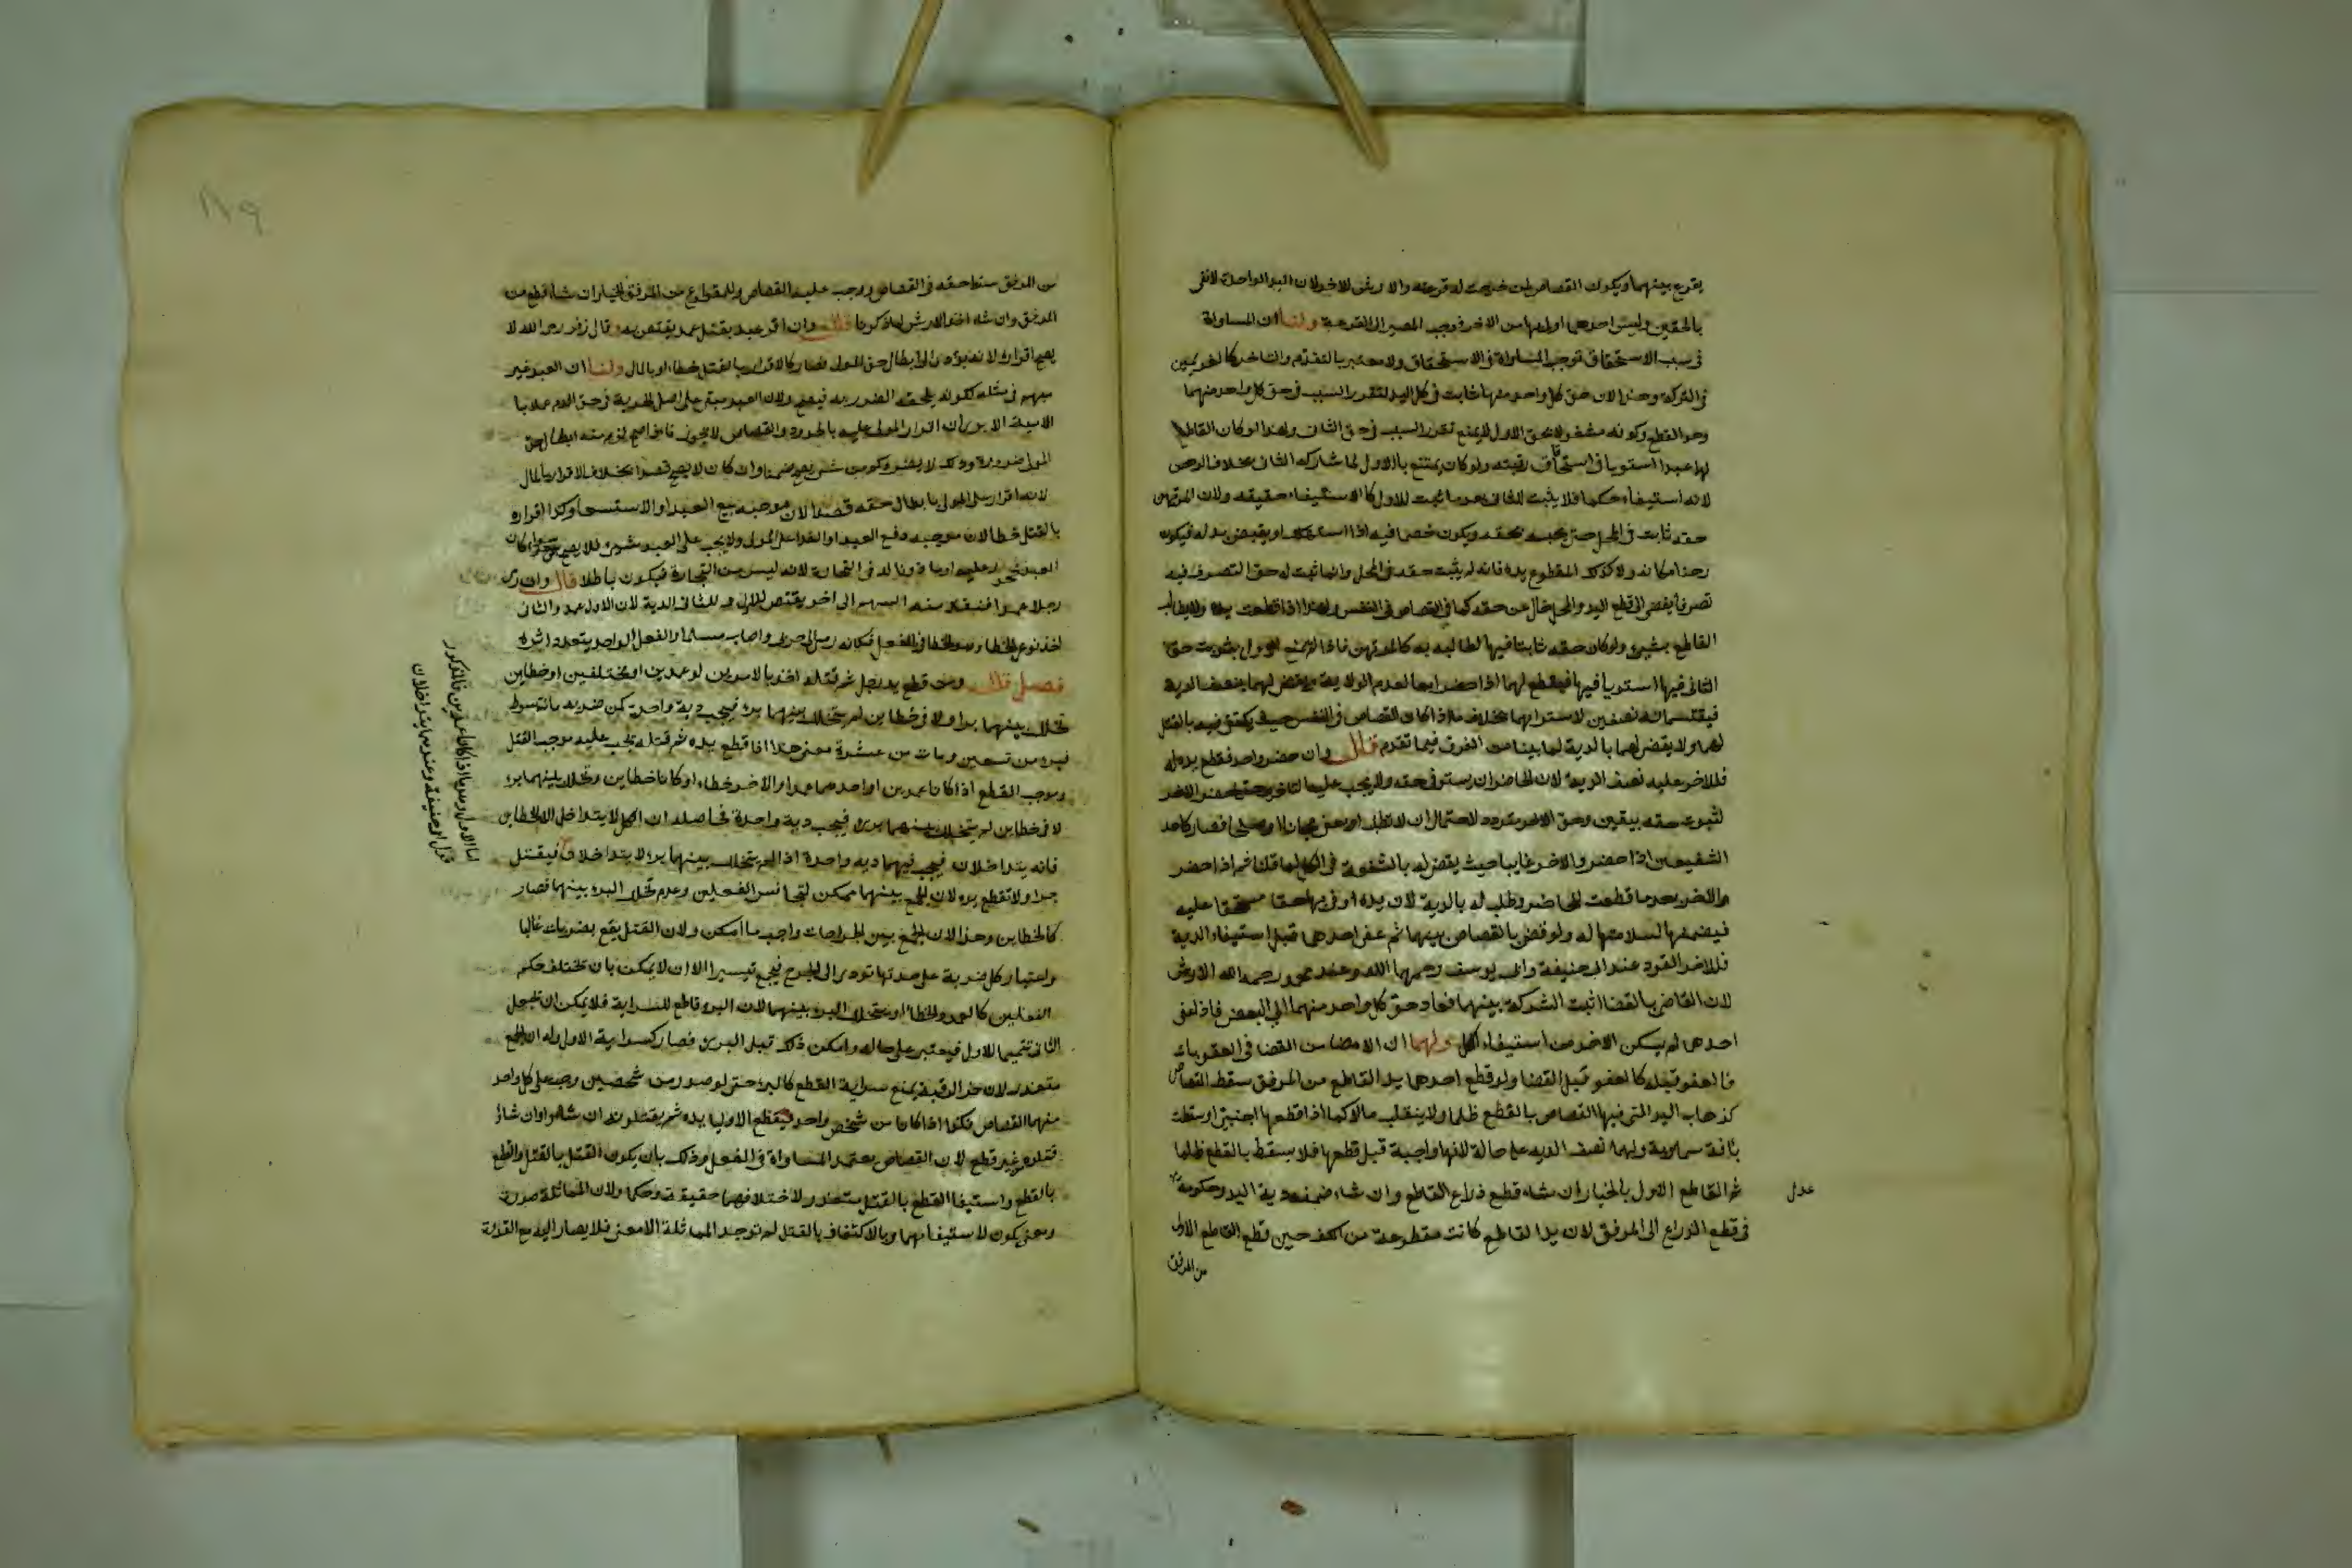 يقرع بينهما ويكون القصاص لمن خرجت له قرعته والارش للاخر لان اليد الواحدة لا تفي
بالحقين وليس احدهما اولى بها من الاخر فوجب المصير الى القرعة ولنا ان المساواة
في سبب الاستحقاق توجب المساواة في الاستحقاق ولا معتبر بالتقدم والتاخر كالغريمين
في التركة وهذا لان حق كل واحد منهما ثابت في كل اليد لتقرر السبب في حق كل واحد منهما
وهو القطع وكونه مشغولا بحق الاول لا يمنع تقرر السبب في حق الثاني ولهذا لو كان القاطع
لهما عبدا استويا في استحقاق رقبته ولو كان يمتنع بالاول لما شاركه الثاني بخلاف الرهن
لانه استيفاء حكما فلا يثبت للثاني بعد ما ثبت للاول كالاستيفاء حقيقة ولان المرتهن
حقه ثابت في المحل حتى يحبسه بحقه ويكون خصما فيه اذا استهلك او يقبض بدله فيكون
رهنا مكانه ولا كذلك المقطوع يده فانه لم يثبت حقه في المحل وانما ثبت له حق التصرف فيه
تصرفا يفضي الى قطع اليد والمحل خال عن حقه كما في القصاص في النفس ولهذا اذا قطعت يده لا يطالب
القاطع بشيء ولو كان حقه ثابتا فيها لطالبه به كالمرتهن فاذا لم يمنع الاول بثبوت حق
الثاني فيها استويا فيها فيقطع لهما اذا حضرا معا لعدم الاولوية ويقضى لهما بنصف الدية
فيقتسمانه نصفين لاستوائهما بخلاف ما اذا كان القصاص في النفس حيث يكتفى فيه بالقتل
لهما ولا يقضى لهما بالدية لما بينا من الفرق فيما تقدم قال وان حضر واحد فقطع يده له
فللاخر عليه نصف الدية لان للحاضر ان يستوفي حقه ولا يجب عليه التاخير حتى يحضر الاخر
لثبوت حقه بيقين وحق الاخر متردد لاحتمال ان لا يطلب او يعفو مجانا او صلحا فصار كاحد
الشفيعين اذا حضر والاخر غايبا حيث يقضى له بالشفعة في الكل لما قلنا ثم اذا حضر
الاخر بعد ما قطعت للحاضر وطلب له بالدية لان يده اوفى بها حقا مستحقا عليه
فيضمنها لسلامتها له ولو قضى بالقصاص بينهما ثم عفى احدهما قبل استيفاء الدية
فللاخر القود عند ابي حنيفة وابي يوسف رحمهما الله وعند محمد رحمه الله الارش
لان القاضي بالقضا اثبت الشركة بينهما فعاد حق كل واحد منهما الى البعض فاذا عفى
احدهما لم يمكن الاخر من استيفاء الكل ولهما ان الامضا من القضا في العقوبات
فالعفو قبله كالعفو قبل القضا ولو قطع احدهما يد القاطع من المرفق سقط القصاص
كذهاب اليد التي فيها القصاص بالقطع ظلما ولا ينقلب مالا كما اذا قطعها اجنبي او سقطت
بافة سماوية ولهما نصف الدية على حاله لانها واجبة قبل قطعها فلا يسقط بالقطع ظلما
ثم القاطع الاول بالخيار ان شاء قطع ذراع القاطع وان شاء ضمنه دية اليد وحكومة
عدل
في قطع الذراع الى المرفق لان يد القاطع كانت مقطوعة من الكف حين قطع القاطع الاول
من المرفق
١٨٩
من المرفق سقط حقه في القصاص ووجب عليه القصاص وللمقطوع من المرفق الخيار ان شا قطع من
المرفق وان شاء اخذ الارش لما ذكرنا قال وان اقر عبد بقتل عمد يقتص به وقال زفر رحمه الله لا
يصح اقراره لانه يؤدي الى ابطال حق المولى فصار كالاقرار بالقتل خطا او بالمال ولنا ان العبد غير
متهم في مثله لكونه يلحقه الضرر به فيصح ولان العبد مبقى على اصل الحرية في حق الدم عملا با
لادمية الا يرى ان اقرار المولى عليه بالحدود والقصاص لا يجوز فاذا صح لزم منه ابطال حق
المولى ضرورة وذلك لا يضر وكم من شيء يصح ضمنا وان كان لا يصح قصدا بخلاف الاقرار بالمال
لانه اقرار على المولى بابطال حقه قصدا لان موجبه بيع العبد او الاستسعا وكذا اقراره
بالقتل خطا لان موجبه دفع العبد او الفدا على المولى ولا يجب على العبد شيء فلا يصح سواء كان
العبد محجورا عليه او ماذونا له في التجارة لانه ليس من التجارة فيكون باطلا قال وان رمى
رجلا عمدا فنفذ منه السهم الى اخر يقتص للاول وللثاني الدية لان الاول عمد والثاني
احد نوعي الخطا وهو الخطا في الفعل فكانه رمى الى حربي واصاب مسلما والفعل الواحد يتعدد اثره
فصل قال ومن قطع يد رجل ثم قتله اخذ بالامرين لو عمدين او مختلفين او خطاين
تخلل بينهما برا ولا في خطاين لم يتخلل بينهما برء فيجب دية واحدة كمن ضربه مائة سوط
فبرء من تسعين ومات من عشرة معنى هذا اذا قطع يده ثم قتله يجب عليه موجب القتل
وموجب القطع اذا كانا عمدين او احدهما عمدا والاخر خطاء او كانا خطاين وتخلل بينهما برء
لا في خطاين لم يتخلل بينهما برء فيجب دية واحدة فحاصله ان الكل لا يتداخل الا الخطاين
فانه يتداخلان فيجب فيهما دية واحدة اذا لم يتخلل بينهما برء لا يتداخلان فيقتل
حدا ولا تقطع يده لان الجمع بينهما ممكن لتجانس الفعلين وعدم تخلل البرء بينهما فصار
كالخطاين وهذا لان الجمع بين الجراحات واجب ما امكن ولان القتل يقع بضربات غالبا
واعتبار كل ضربة على حدتها تودي الى الحرج فيجمع تيسيرا الا ان لا يمكن بان تختلف حكم
الفعلين كالعمد والخطا او يتخلل البرء بينهما لان البرء قاطع للسراية فلا يمكن ان يجعل
الثاني تتميما للاول فيعتبر على حاله وامكن ذلك قبل البرء فصار كسراية الاول وله ان الجمع
متعذر لان حز الرقبة يمنع سراية القطع كالبرء حتى لو صدر من شخصين وجب على كل واحد
منهما القصاص فكذا اذا كانا من شخص واحد فيقطع الاوليا يده ثم يقتلونه ان شاءوا وان شاؤ
قتلوه غير قطع لان القصاص يعتمد المساواة في الفعل وذلك بان يكون القتل بالقتل والقطع
بالقطع واستيفا القطع بالقتل متعذر لاختلافهما حقيقة وحكما ولان المماثلة صورة
ومعنى يكون باستيفائهما وبالاكتفاء بالقتل لم توجد المماثلة الا معنى فلا يصار اليه مع القدرة
اما الاول وهو ما اذا كانا عمدين فالمذكور
قول ابو حنيفة وعندهما يتداخلان